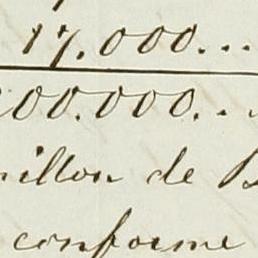 17.000...
00.000...
illon de B
conforme